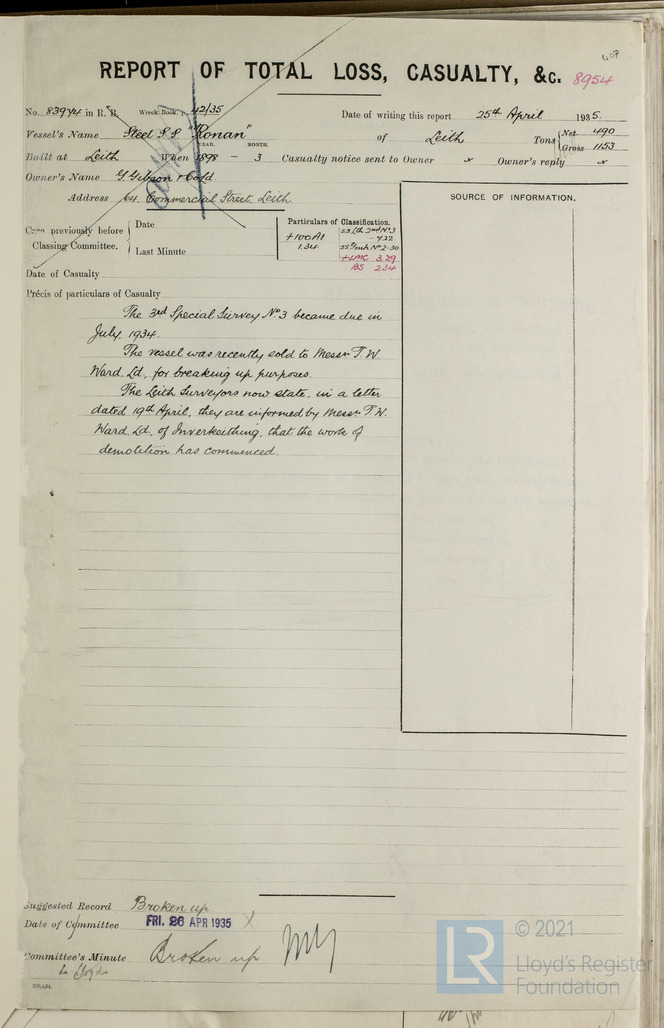 REPORT OF TOTAL LOSS, CASUALTY, &c. 8954
No. 83974 in R. B. Wreck Book, p. 42/35 Date of writing this report 25th April 1935.
Vessel's Name Steel S.S "Ronan" of Leith Tons { Net 490
Gross 1153
YEAR. MONTH.
Built at Leith When 1898 - 3 Casualty notice sent to Owner x Owner's reply x
Owner's Name G. Gibson & Co Ld.
Address 64, Commercial Street, Leith
SOURCE OF INFORMATION.
Case previously before Classing Committee. { Date
Last Minute
Particulars of Classification.
+100A1
1.34
SS Lth 2nd No 3
- 4.22
SS No 2-30
+LMC 3.29
BS 2.34
Date of Casualty
Précis of particulars of Casualty
The 3rd Special Survey No 3 became due in
July, 1934.
The vessel was recently sold to Messrs T. W.
Ward, Ld, for breaking up purposes.
The Leith Surveyors now state, in a letter
dated 19th April, they are informed by Messrs T. W.
Ward, Ld, of Inverkeithing, that the work of
demolition has commenced.
Suggested Record Broken up
Date of Committee FRI. 26 APR 1935
Committee's Minute Broken up
© 2021
Lloyd's Register
Foundation